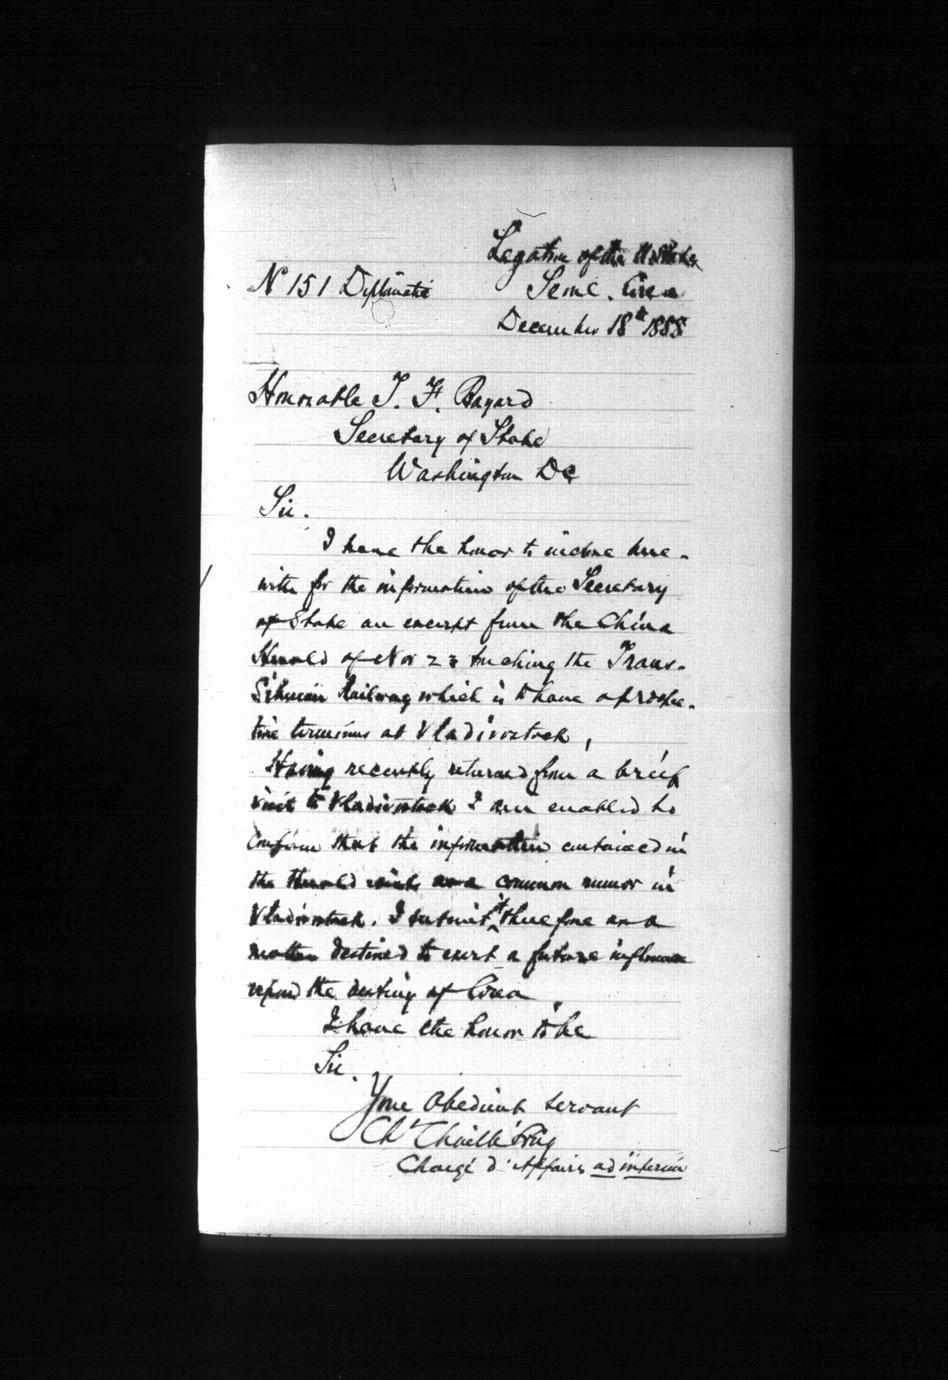 Legation of the U. States
N 151 Diplomatic Seoul. Corea
December 18th 1888
Honorable T. F. Bayard
Secretary of State
Washington DC
Sir.
I have the honor to inclose here-
with for the information of the Secretary
of State an excerpt from the China
Herald of Nov 23 touching the Trans-
Siberian Railway which is to have a prospec-
tive terminus at Vladivostock,
Having recently returned from a brief
visit to Vladivostock I am enabled to
confirm that the information contained in
the Herald as a common rumor in
Vladivostock. I submit it therefore as a
matter destined to exert a future influence
upon the destiny of Corea.
I have the honor to be
Sir.
Your Obedient Servant
Ch Chaillé Long
Chargé d'Affaires ad interim